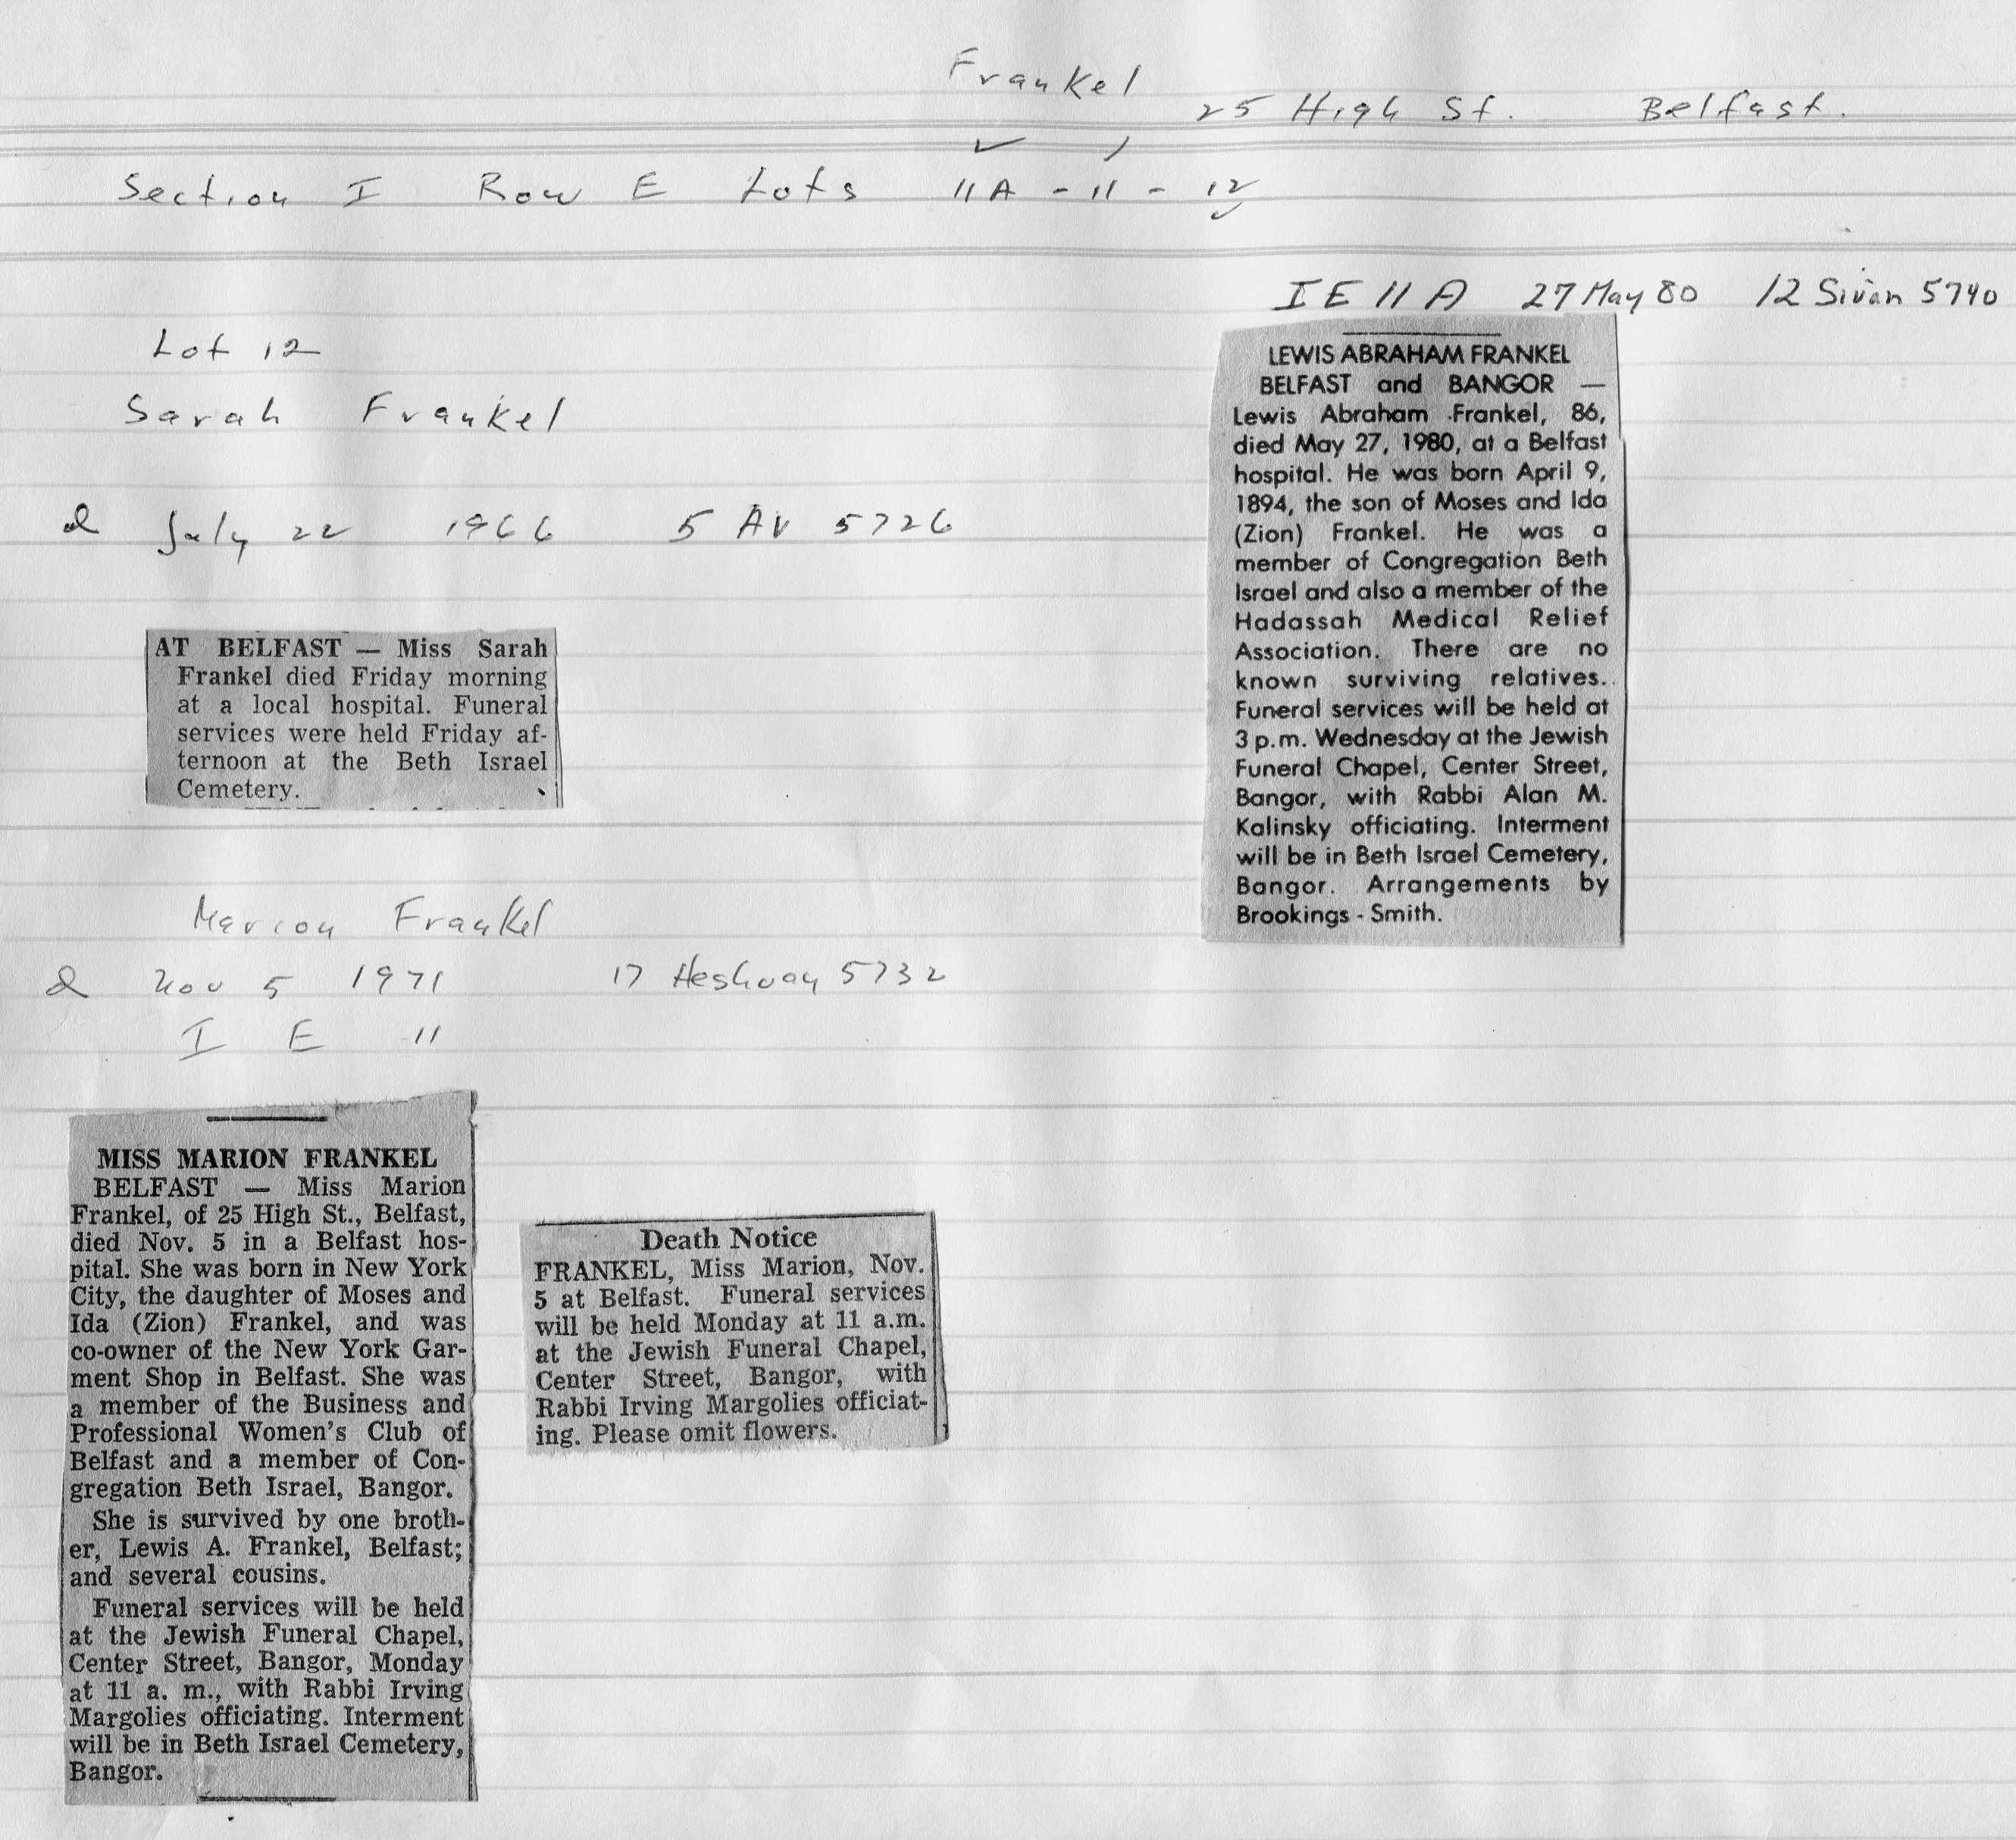 Frankel
25 High St. Belfast.
Section I Row E Lots 11A - 11 - 12
Lot 12
Sarah Frankel
d July 22 1966 5 AV 5726
AT BELFAST — Miss Sarah
Frankel died Friday morning
at a local hospital. Funeral
services were held Friday af-
ternoon at the Beth Israel
Cemetery.
Marion Frankel
d Nov 5 1971 17 Heshvan 5732
I E 11
MISS MARION FRANKEL
BELFAST — Miss Marion
Frankel, of 25 High St., Belfast,
died Nov. 5 in a Belfast hos-
pital. She was born in New York
City, the daughter of Moses and
Ida (Zion) Frankel, and was
co-owner of the New York Gar-
ment Shop in Belfast. She was
a member of the Business and
Professional Women's Club of
Belfast and a member of Con-
gregation Beth Israel, Bangor.
She is survived by one broth-
er, Lewis A. Frankel, Belfast;
and several cousins.
Funeral services will be held
at the Jewish Funeral Chapel,
Center Street, Bangor, Monday
at 11 a. m., with Rabbi Irving
Margolies officiating. Interment
will be in Beth Israel Cemetery,
Bangor.
Death Notice
FRANKEL, Miss Marion, Nov.
5 at Belfast. Funeral services
will be held Monday at 11 a.m.
at the Jewish Funeral Chapel,
Center Street, Bangor, with
Rabbi Irving Margolies officiat-
ing. Please omit flowers.
I E 11 A 27 May 80 12 Sivan 5740
LEWIS ABRAHAM FRANKEL
BELFAST and BANGOR —
Lewis Abraham Frankel, 86,
died May 27, 1980, at a Belfast
hospital. He was born April 9,
1894, the son of Moses and Ida
(Zion) Frankel. He was a
member of Congregation Beth
Israel and also a member of the
Hadassah Medical Relief
Association. There are no
known surviving relatives.
Funeral services will be held at
3 p.m. Wednesday at the Jewish
Funeral Chapel, Center Street,
Bangor, with Rabbi Alan M.
Kalinsky officiating. Interment
will be in Beth Israel Cemetery,
Bangor. Arrangements by
Brookings - Smith.